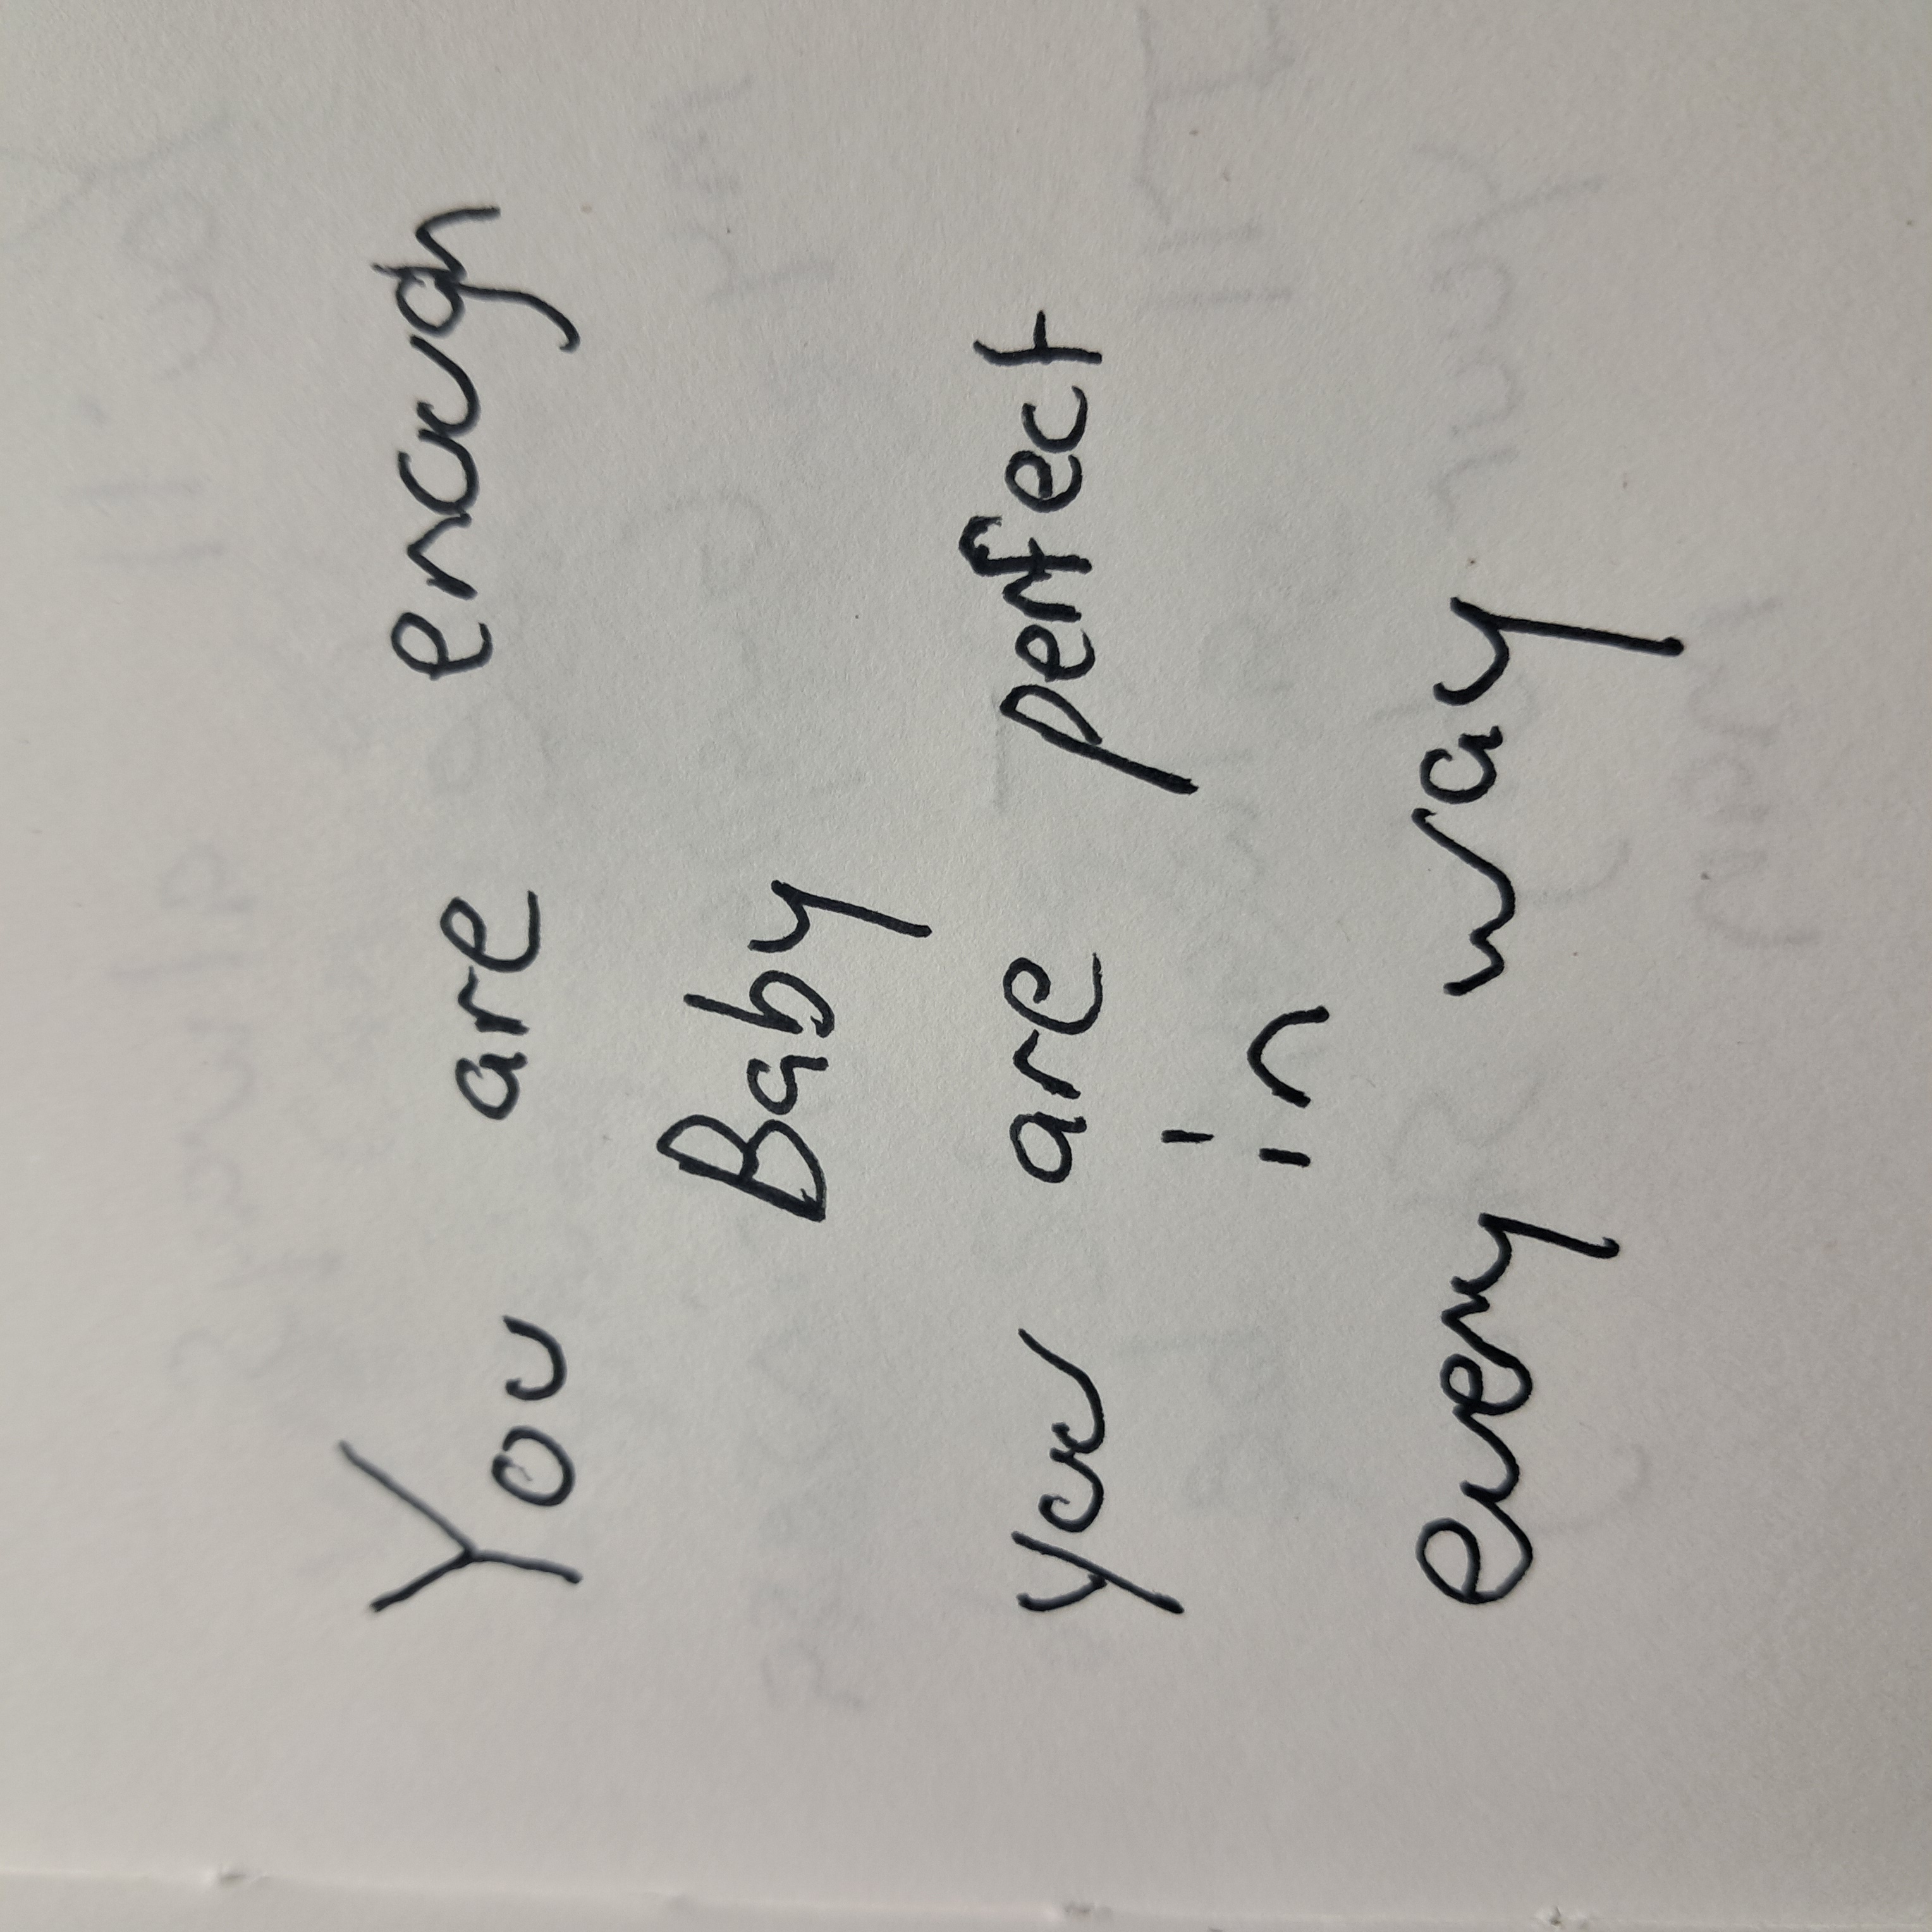 You are enough
Baby
you are perfect
in
every way